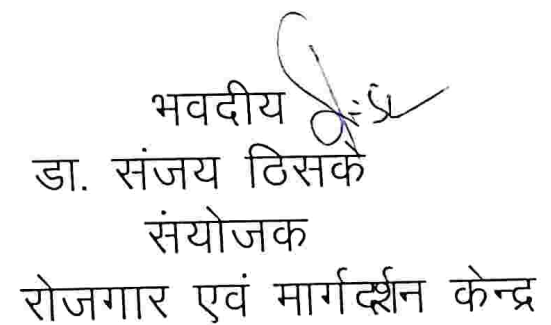 भवदीय
डा. संजय ठिसके
संयोजक
रोजगार एवं मार्गदर्शन केन्द्र